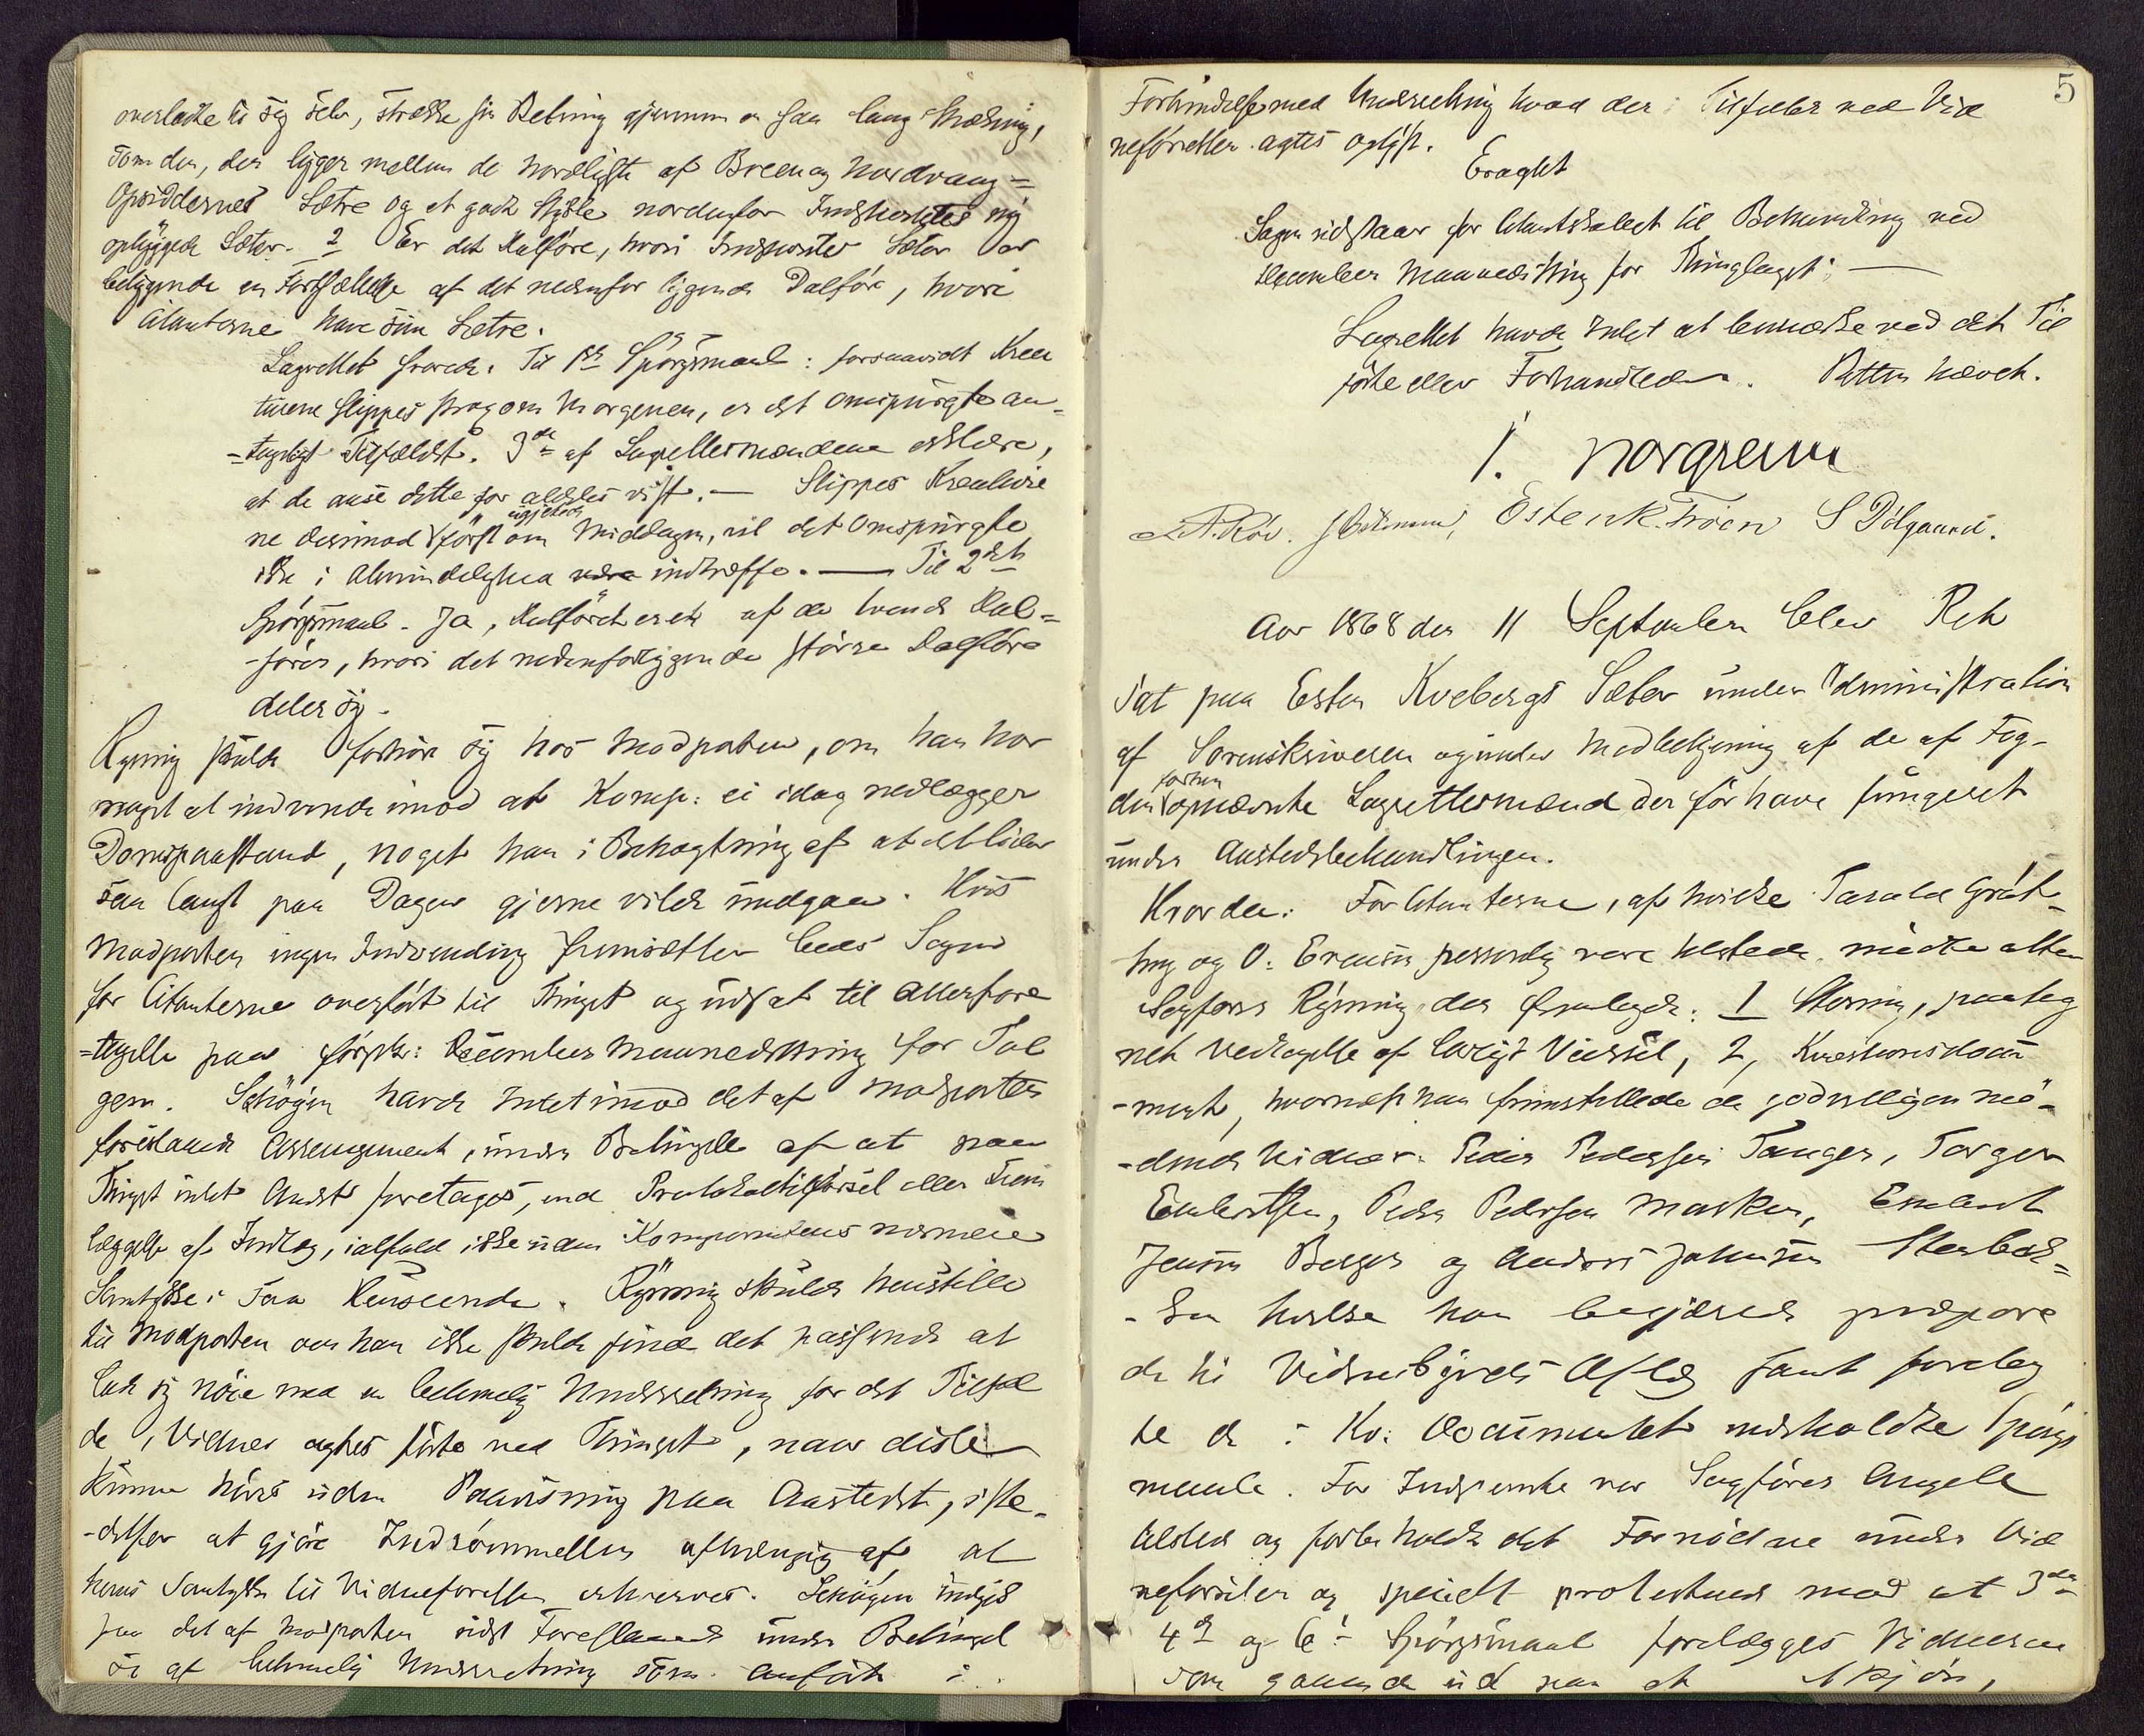 overladte til sig selv, strække sin Beting gjennem en saa lang Strækning,
som den, der ligger mellem de nordligste af Breen og Nordvang=
Opsiddernes Sætre og et godt Stykke nordenfor Indstevntes ny
opbyggede Sæter. 2 Er det Dalføre, hvori Indstevntes Sæter er
beliggende en Fortsættelse af det nedenfor liggende Dalføre, hvori
Citanterne have sine Sætre.
Lagrettet svarede: Til 1ste Spørgsmaal: forsaavidt Krea
turene slippes strax om Morgenen, er det omspurgte an-
-tageligt Tilfældet. 3de af Lagrettesmændene erklære,
at de anse dette for aldeles vist. — Slippes Kreaturer
ne derimod ugjetede først om Middagen, vil det omspurgte
ikke i Almindelighed være indtræffe. — Til 2det
Spørgsmaal. Ja, Dalføret er et af de tvende Dal=
-fører, hvori det nedenforliggende større Dalføre
deler sig.
Ryning skulde forhøre sig hos Modparten, om han har
noget at indvende imod at Komp: ei idag nedlægger
Domspaastand, noget han i Betragtning af at det lider
saa langt paa Dagen gjerne vilde undgaa. Hvis
Modparten ingen Indvending fremsætter bedes Sagen
for Citanterne overført til Thinget og udsat til Allerfore
=tagelse paa førstk: December Maanedsthing for Tol
gen. Schøgen havde Intet imod det af Modparten
foreslaaede Arrangement, under Betingelse af at paa
Thinget intet Andet foretages, end Protokoltilførsel eller Frem
læggelse af Indlæg, ialfald ikke uden Komparentens nærmere
Samtykke i saa Henseende. Ryning skulde henstille
til Modparten om han ikke skulde finde det passende at
lade sig nøie med en betimelig Underretning for det Tilfæl
de, Vidner agtes førte ved Thinget, naar disse
kunne høres uden Paavisning paa Aastedet, iste-
-detfor at gjøre Indrømmelsen afhængig af at
hans Samtykke til Vidneførslen erhverves. Schøgen indgik
paa det af Modparten sidst Foreslaaede under Betingel
se af betimelig Underretning som anført i
5
Forbindelse med Underretning hvad der i Tilfælde ved Vid
neførselen agtes oplyst.
Eragtet
Sagen udstaar for Citantskabet til Behandling ved
December Maanedsthing for Thinglaget. —
Lagrettet havde Intet at bemærke ved det Til
førte eller Forhandlede. Retten hævet.
J. Norgrenn
Esten K. Trøen S Dølgaard.
Aar 1868 den 11 September blev Ret
sat paa Esten Kvebergs Sæter under Administration
af Sorenskriveren og under Medbetjening af de af Fog-
den forhen opnævnte Lagrettesmænd der før have fungeret
under Aastedsbehandlingen.
Hvorda: For Citanterne, af hvilke Tarald Grøt-
ting og O: Erensen personlig vare tilstede, mødte atter
Sagfører Ryning der fremlagde: 1 Stevning, paateg
net Vedtagelse af lovligt Varsel, 2, Kvæstionsdocu
-ment, hvornæst han fremstillede de godvilligen mö-
-dende Vidner: Peder Pedersen Tangen, Torger
Embretsen, Peder Pedersen Mosken, Embret
Jensen Berger og Anders Johnsen Stenbæk=
-ken hvilke han begjærede præpare
de til Vidnesbyrds Aflæg samt forelag
te de i Kv: Documentet indeholdte Spørgs
maale. For Indstevnte var Sagfører Angell
tilsted og forbeholdt det Fornødne under Vid
neførselen og specielt protesterede mod at 3die
4de og 6te Spørgsmaal forelægges Vidnerne
som gaaende ud paa et Skjøn,